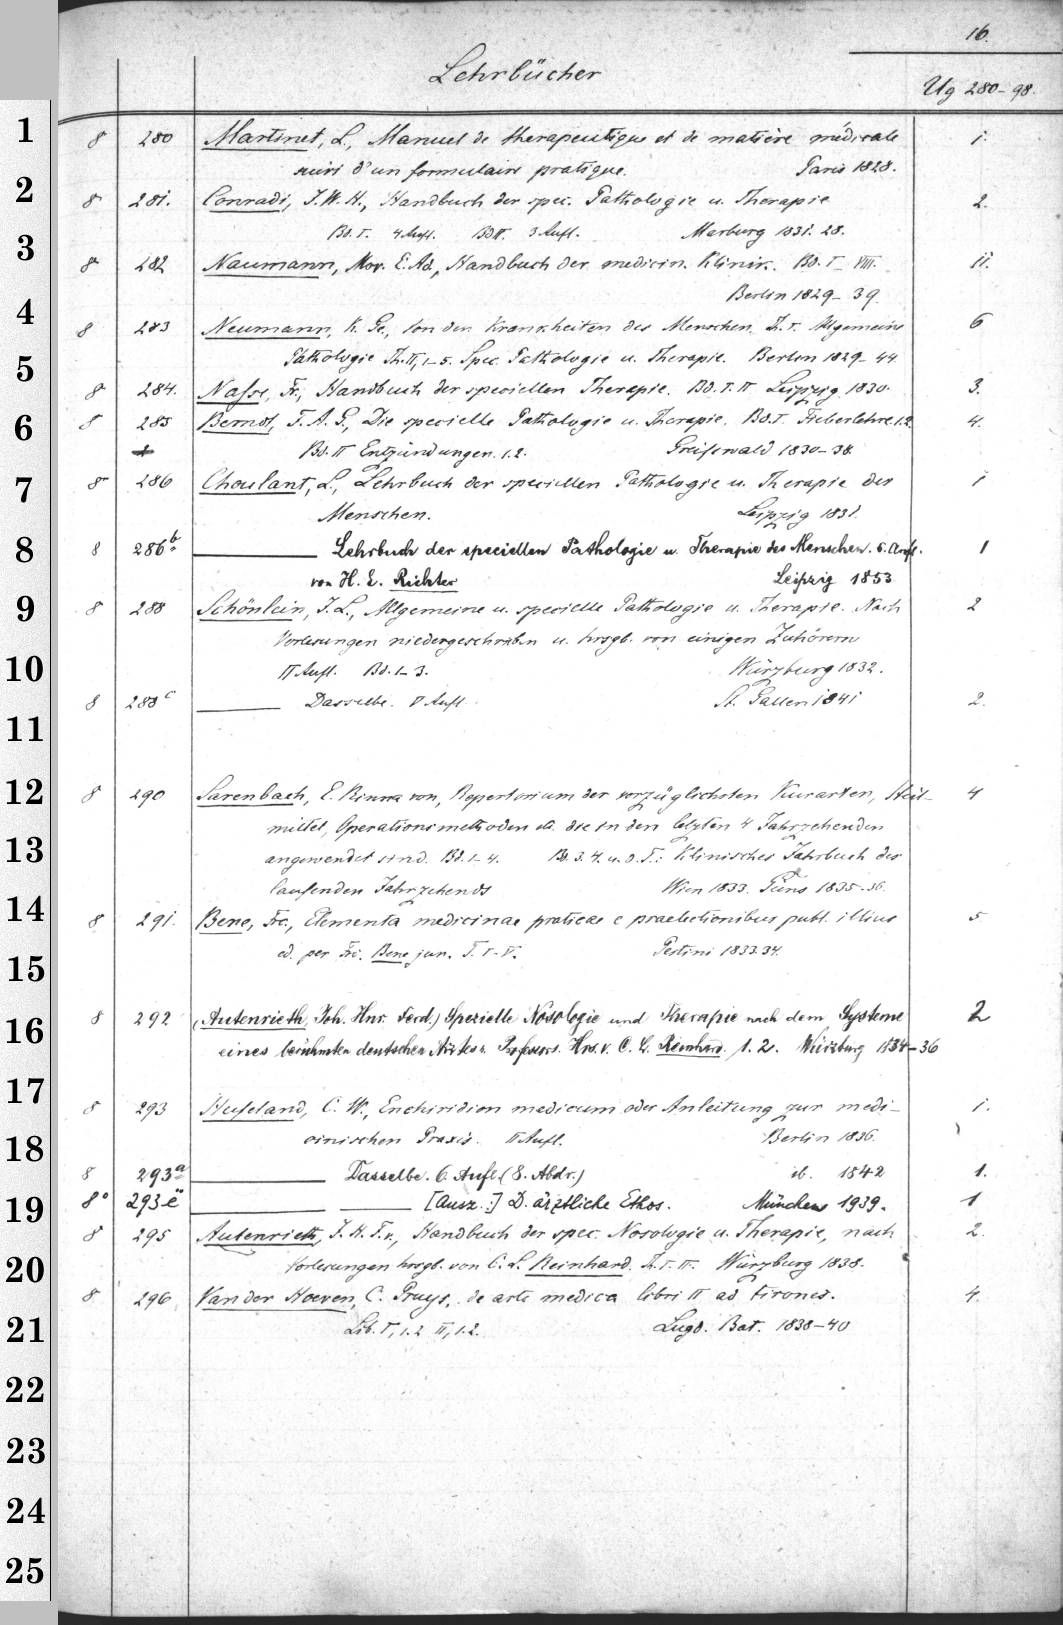 16.
Lehrbücher
Ug 280–98.
8 280 Martinet, L., Manuel de therapeutique et de matière médicale 1.
suivi d'un formulaire pratique. Paris 1828.
8 281. Conradi, J. W. H., Handbuch der spec. Pathologie u. Therapie 2.
Bd. I. 4 Aufl. Bd II. 3 Aufl. Marburg 1831. 28.
8 282 Naumann, Mor. E. Ad., Handbuch der medicin. Klinik. Bd. I–VIII. 11.
Berlin 1829–39.
8 283 Neumann, K. Ge., Von den Krankheiten des Menschen. Th. I. Allgemeine 6
Pathologie Th. II, 1–5. Spec. Pathologie u. Therapie. Berlin 1829–44
8 284. Nasse, Fr., Handbuch der speciellen Therapie. Bd. I. II Leipzig 1830. 3.
8 285 Berndt, F. A. G., Die specielle Pathologie u. Therapie. Bd. I Fieberlehre 1.2 4.
Bd. II Entzündungen. 1. 2. Greifswald 1830–38.
8 286 Choulant, L., Lehrbuch der speciellen Pathologie u. Therapie des 1
Menschen. Leipzig 1831.
8 286b. Lehrbuch der speciellen Pathologie u. Therapie des Menschen. 5. Aufl. 1
von H. E. Richter Leipzig 1853
8 288 Schönlein, J. L., Allgemeine u. specielle Pathologie u. Therapie. Nach 2
Vorlesungen niedergeschrieben u. hrsgb. von einigen Zuhörern
II Aufl. Bd. 1–3. Würzburg 1832.
8 288c Dasselbe. V Aufl. St. Gallen 1841 2.
8 290 Sarenbach, E. Rinna von, Repertorium der vorzüglichsten Kurarten, Heil- 4
mittel, Operationsmethoden etc. die in den letzten 4 Jahrzehenden
angewendet sind. Bd. 1–4. Bd. 3. 4. u. d. T.: Klinisches Jahrbuch des
laufenden Jahrzehends Wien 1833. Güns 1835–36.
8 291. Bene, Frc., Elementa medicinae practicae e praelectionibus publ. illius 5
ed. per Frc. Bene jun. T. I–V. Pestini 1833.34.
8 292 (Autenrieth, Joh. Hnr. Ferd.) Spezielle Nosologie und Therapie nach dem Systeme 2
eines berühmten deutschen Arztes u. Professors. Hrs. v. C. L. Reinhard. 1. 2. Würzburg 1834–36
8 293 Hufeland, C. W., Enchiridion medicum oder Anleitung zur medi- 1.
cinischen Praxis. II Aufl. Berlin 1836.
8 293a Dasselbe. 6. Aufl. (8. Abdr.) ib. 1842 1.
8° 293ë [Ausz.:] D. ärztliche Ethos. München 1939. 1
8 295 Autenrieth, J. H. F. v., Handbuch der spec. Nosologie u. Therapie, nach 2.
Vorlesungen hrsgb. von C. L. Reinhard. Th. I. II. Würzburg 1838.
8 296 Van der Hoeven, C. Pruys, de arte medica libri II ad tirones. 4.
Lib. I, 1. 2 II, 1. 2. Lugd. Bat. 1838–40
1
2
3
4
5
6
7
8
9
10
11
12
13
14
15
16
17
18
19
20
21
22
23
24
25